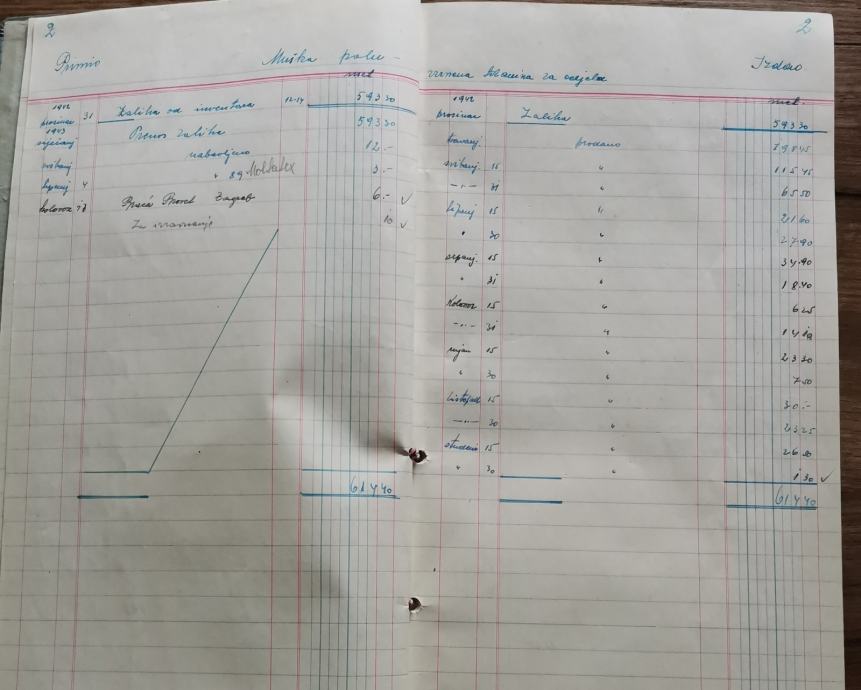 2
Primio
Muška polu-
met
1942
prosinac 31 Zaliha od inventara 12-14 593 30
1943
siječanj Prenos zaliha 593 30
svibanj nabavljeno 12.-
lipanj 4 " 89 3.-
kolovoz 17 Zagreb 6.- ✓
Za 10 ✓
614 40
2
vunena tkanina za odjela
Izdano
met.
1942
prosinac Zaliha 593 30
travanj prodano 79 845
svibanj 15 " 115 45
-"- 31 " 65 50
lipanj 15 " 21 60
" 30 " 27 90
srpanj 15 " 34 90
" 31 " 18 40
kolovoz 15 " 6 25
-"- 31 " 14 10
rujan 15 " 23 30
" 30 " 7 50
listopad 15 " 30.-
-"- 30 " 23 25
studeni 15 " 26 50
" 30 " 1 30 ✓
614 40